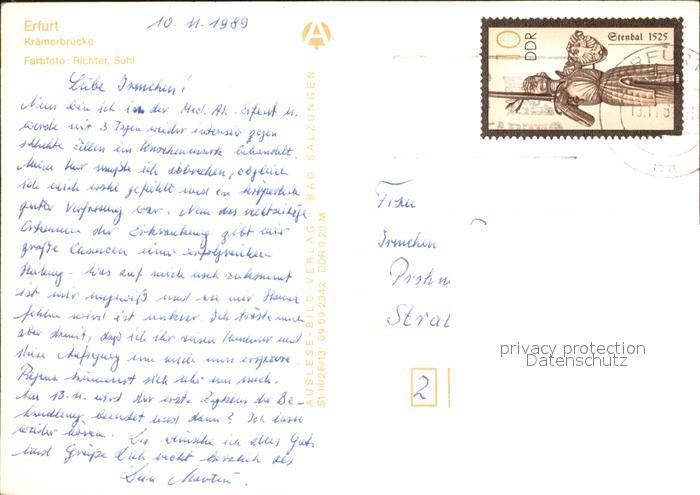 Erfurt
Krämerbrücke
Farbfoto: Richter, Suhl
10.11.1989
Liebe Irmchen!
Nun bin ich in der Med. Ak. Erfurt u.
werde seit 3 Tagen wieder intensiv gegen
schlechte Zellen im Knochenmark behandelt.
Meine Kur mußte ich abbrechen, obgleich
ich mich wohl gefühlt und in körperlich
guter Verfassung war. Nun das rechtzeitige
Erkennen der Erkrankung gibt mir
große Chancen einer erfolgreichen
Heilung. Was auf mich noch zukommt
ist mir ungewiß und wie mir
fehlen wird ist unklar. Ich tröste mich
aber damit, daß ich ihr seinen Kummer und
diese Aufregung um mich nun erspare.
Regina kümmert sich sehr um mich.
Am 13.11. wird der erste Zyklus der Be-
handlung beendet und dann? Ich lasse
wieder hören. Dir wünsche ich alles Gute
und Grüße Dich recht herzlich als
Dein Martin.
AUSLESE-BILD-VERLAG BAD SALZUNGEN
S1 III/26/13 09 09 2342 DDR 0,20 M
10
DDR
Stendal 1525
Frau
Irmchen
Prohn
Stral
2
privacy protection
Datenschutz